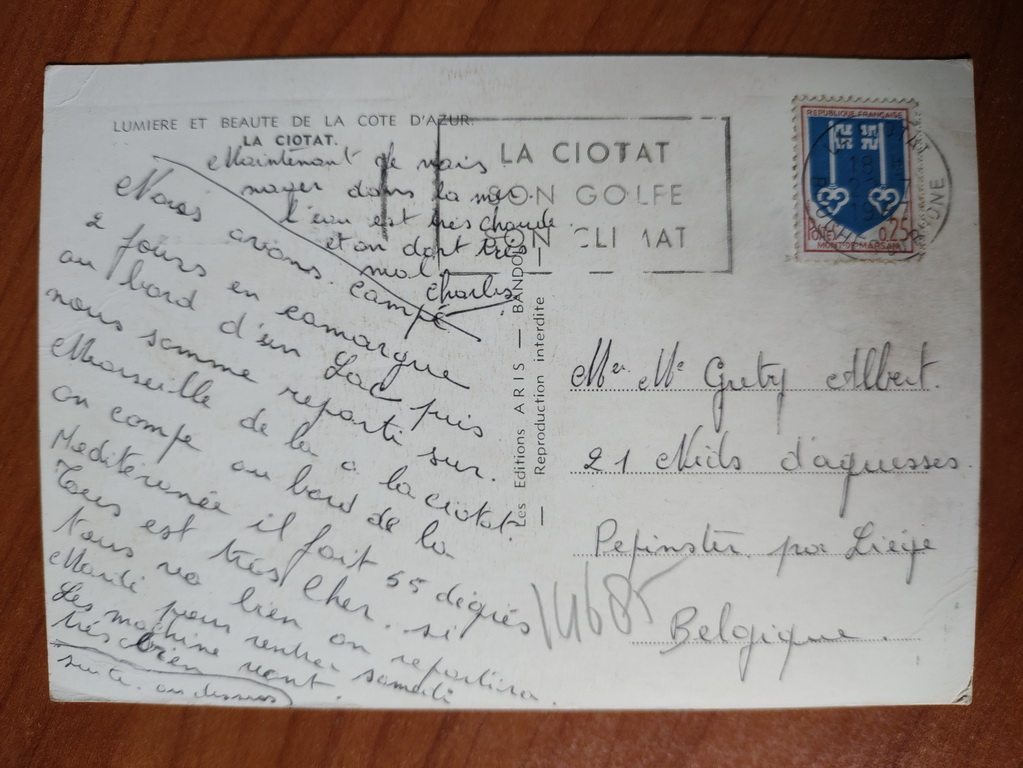 LUMIERE ET BEAUTE DE LA COTE D'AZUR.
LA CIOTAT.
Nous avons campé
2 jours en camargue
au bord d'un Lac puis
nous somme reparti sur
Marseille de la a la ciotat.
on compe au bord de la
Mediterranée il fait 55 dégrés
Tous est très Cher. si
tous va bien on repartira
Mardi pour rentrer samedi
Les machine vont
très bien
suite au dessus
Maintenant je vais
nager dans la mer.
l'eau est très chaude
et on dort très
mal
Charles
Les Editions ARIS — BANDOL —
Reproduction interdite
LA CIOTAT
SON GOLFE
SON CLIMAT
REPUBLIQUE FRANÇAISE
POSTES 0,25
MONT-DE-MARSAN
Mer Me Gretry Albert.
21 Nids d'aguesses.
Pepinster par Liège
Belgique.